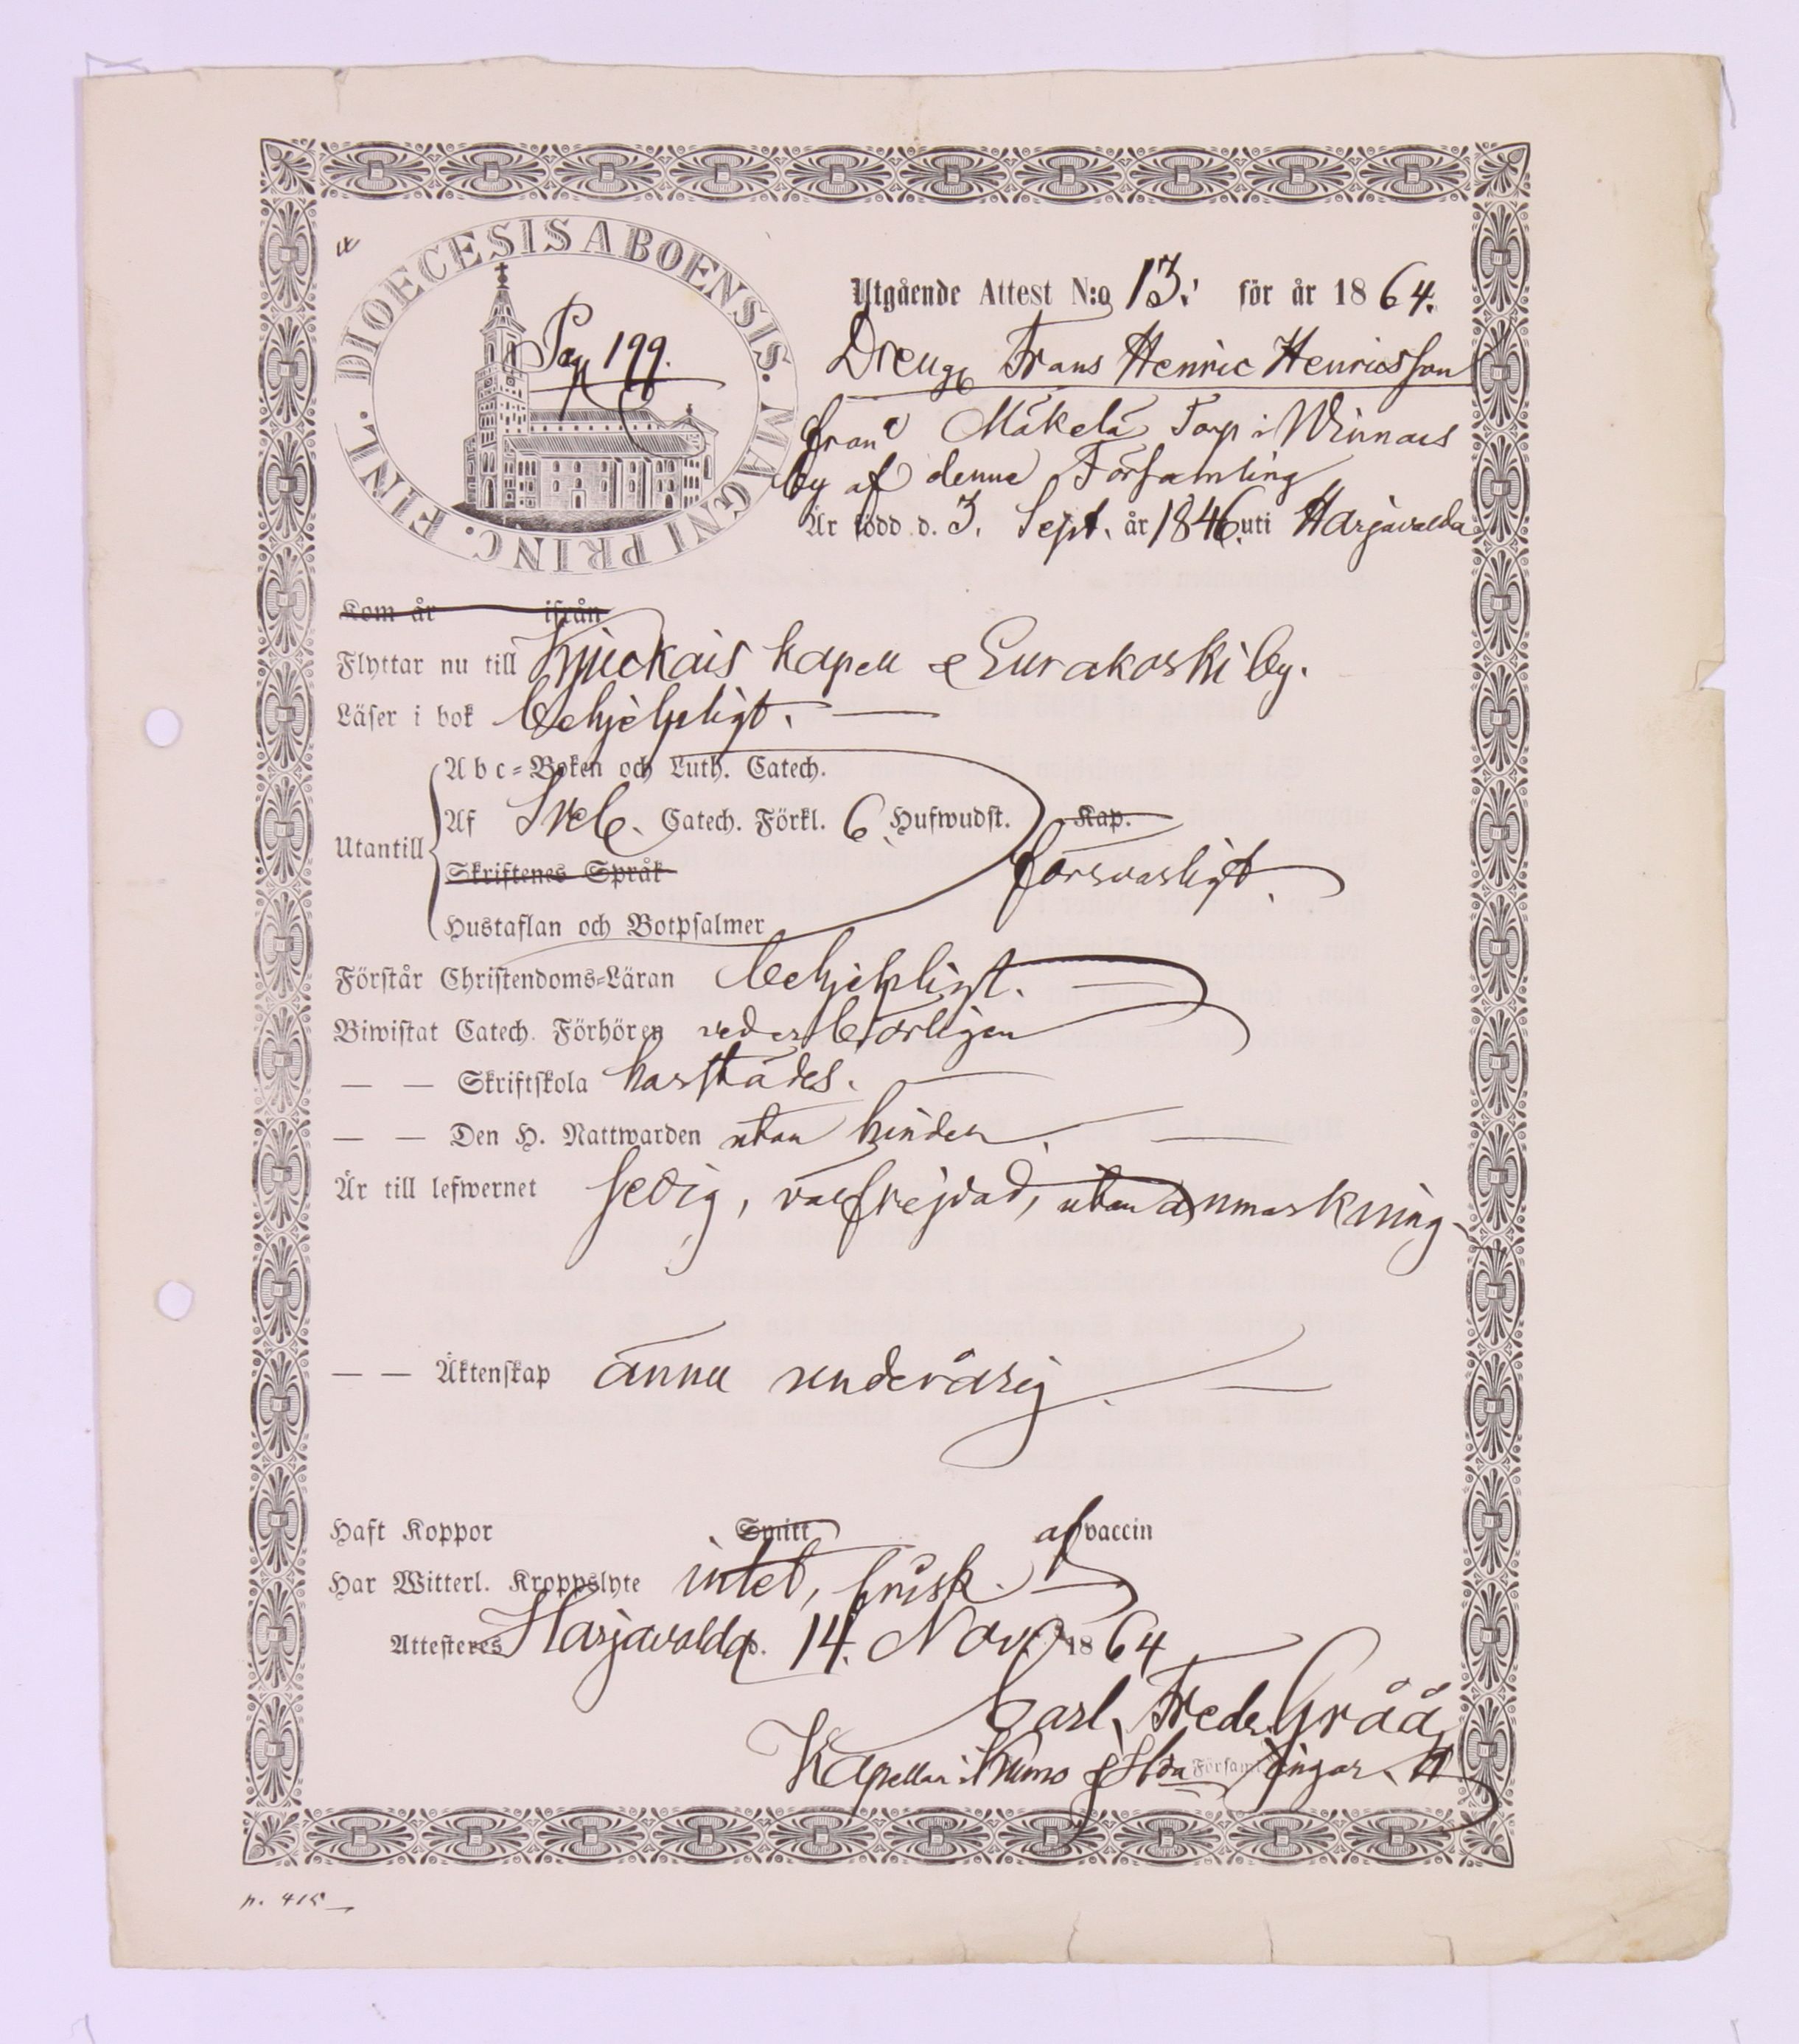 DIOECESIS ABOENSIS. MAGNI PRINC. FINL.
Pag 199.
Utgående Attest N:o 13. för år 1864.
Dreng Frans Henric Henricsson
från Mäkelä Torp i Winnais
by af denna Församling
Är född d. 3. Sept. år 1846 uti Harjavalda
Kom år ifrån
Flyttar nu till Kjuckais kapell & Eurakoski by.
Läser i bok behjelpligt.
Abc-Boken och Luth. Catech.
Utantill Af Sveb. Catech. Förkl. 6 Hufwudst. Kap.
försvarligt.
Skriftenes Språk
Hustaflan och Botpsalmer
Förstår Christendoms-Läran behjelpligt.
Biwistat Catech. Förhören vederbörligen
— — Skriftskola härstädes.
— — Den H. Nattwarden utan hinder.
Är till lefwernet sedig, välfrejdad, utan anmärkning
— — Äktenskap ännu underårig
Haft Koppor Smitt af vaccin
Har Witterl. Kroppslyte intet, frisk.
Attesteres Harjavalda d. 14. Nov. 1864
Carl Fredr. Gråå,
Kapellan i Kumo & Hda Församlingar.
p. 415